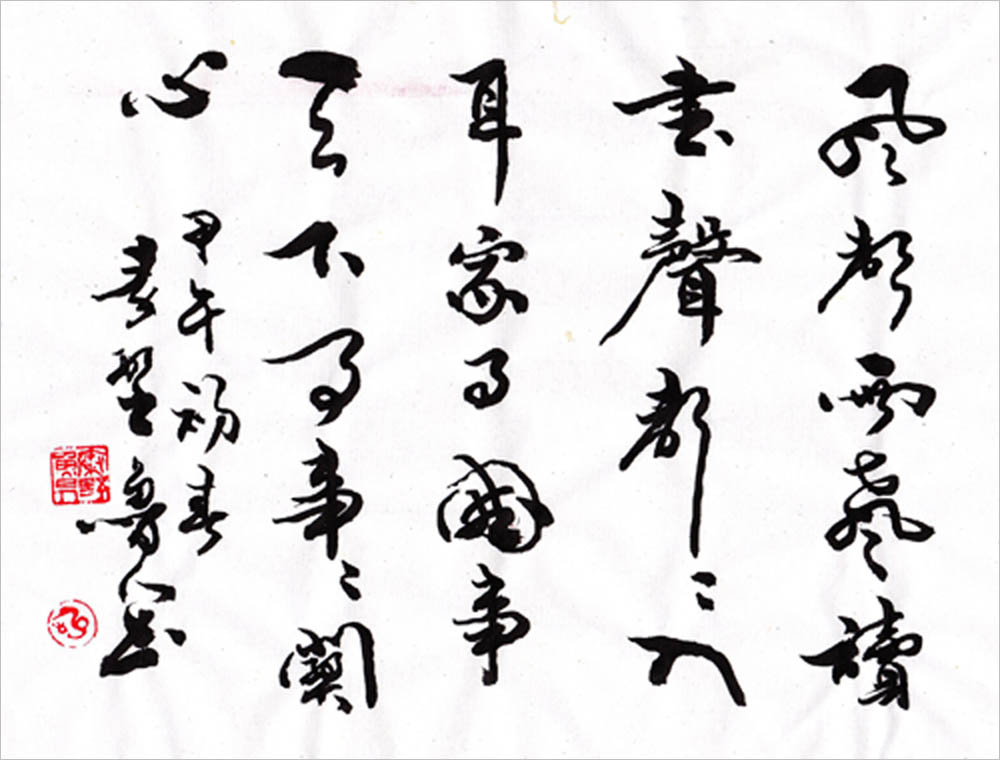 風聲雨聲讀
書聲聲〻入
耳家事國事
天下事事〻關
心
甲午初春